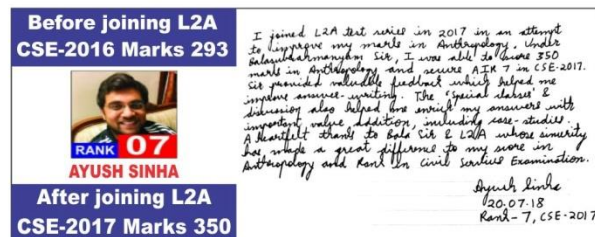 Before joining L2A
CSE-2016 Marks 293
RANK 07
AYUSH SINHA
After joining L2A
CSE-2017 Marks 350
I joined L2A test series in 2017 in an attempt
to improve my marks in Anthropology. Under
Balasubramanyam Sir, I was able to score 350
marks in Anthropology and secure AIR 7 in CSE-2017.
Sir provided valuable feedback which helped me
improve answer-writing. The 'Special classes' &
discussion also helped me enrich my answers with
important value addition, including case-studies.
A heartfelt thanks to Bala Sir & L2A whose sincerity
has made a great difference to my score in
Anthropology and Rank in Civil Services Examination.
Ayush Sinha
20.07.18
Rank-7, CSE-2017